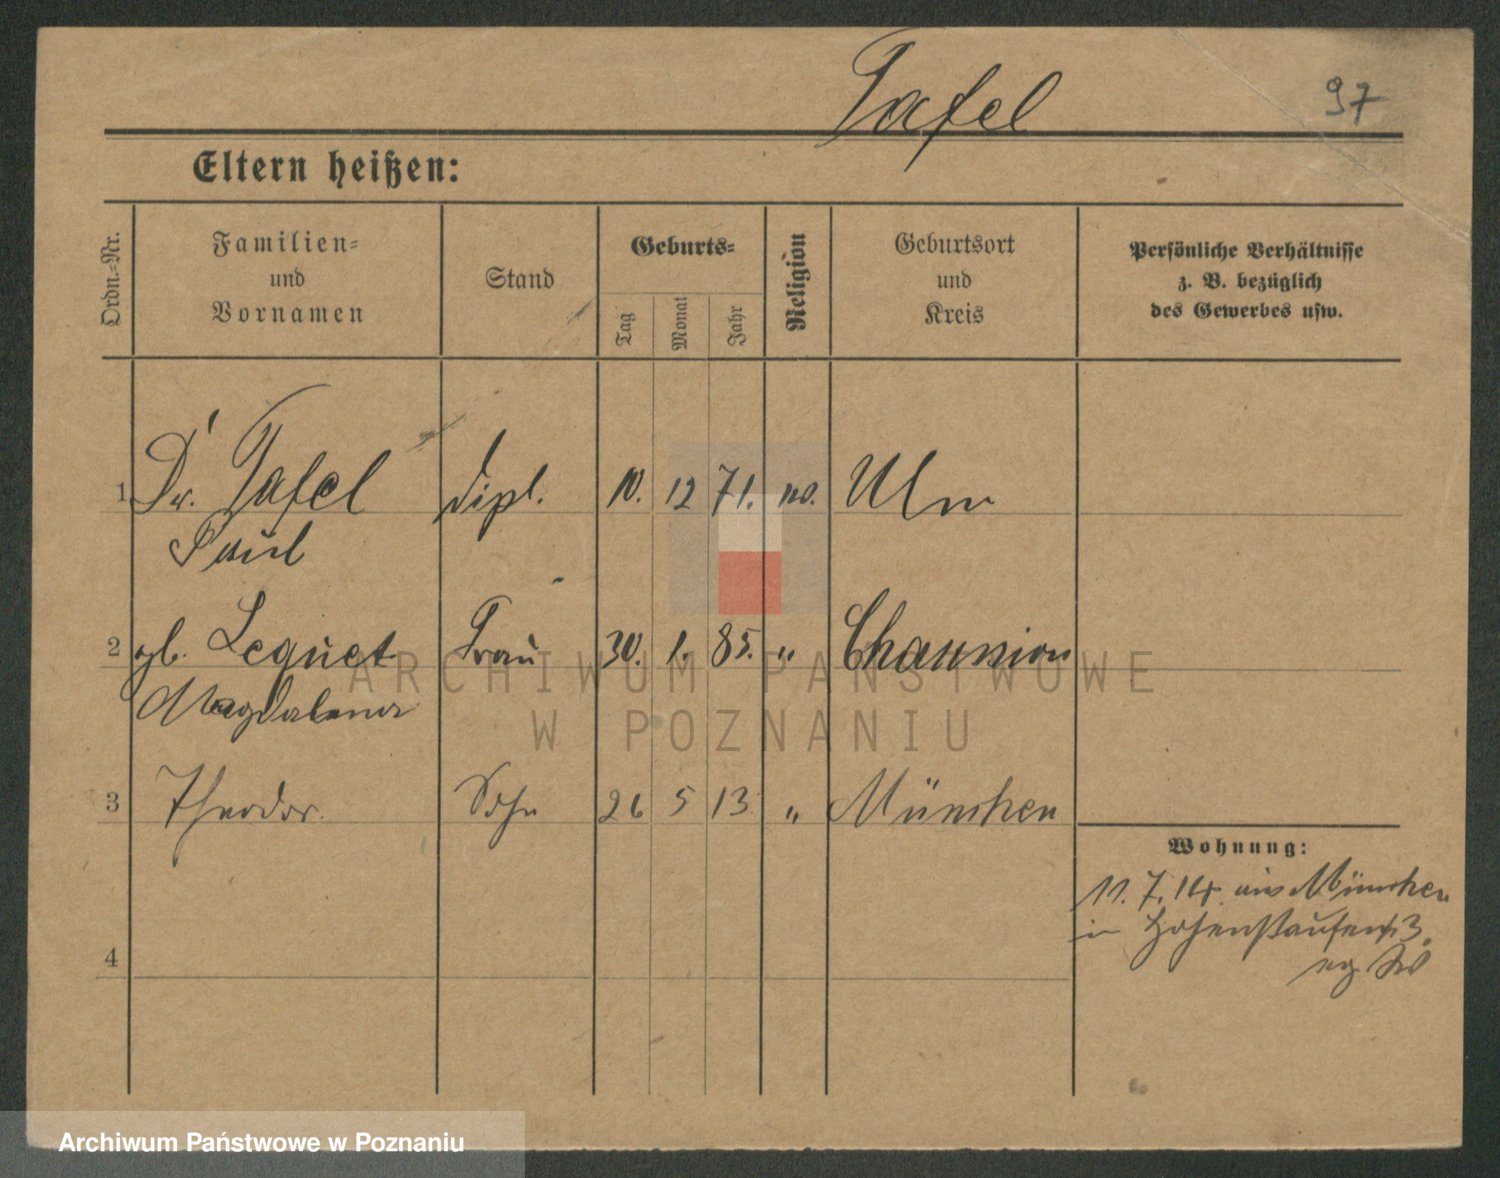 Tafel
97
Eltern heißen:
Ordn.-Nr.
Familien-
und
Vornamen
Stand
Geburts-
Tag
Monat
Jahr
Religion
Geburtsort
und
Kreis
Persönliche Verhältnisse
z. B. bezüglich
des Gewerbes usw.
1 Dr. Tafel dipl. 10. 12 71. Ulm
Paul
2 gb. Lequet Frau 30. 1. 85. " Chaunion
Magdalena
3 Theodor. Sohn 26 5 13 " München
Wohnung:
11. 7. 14 aus München
in Hohenstaufenstr 3.
4
ARCHIWUM PAŃSTWOWE
W POZNANIU
Archiwum Państwowe w Poznaniu